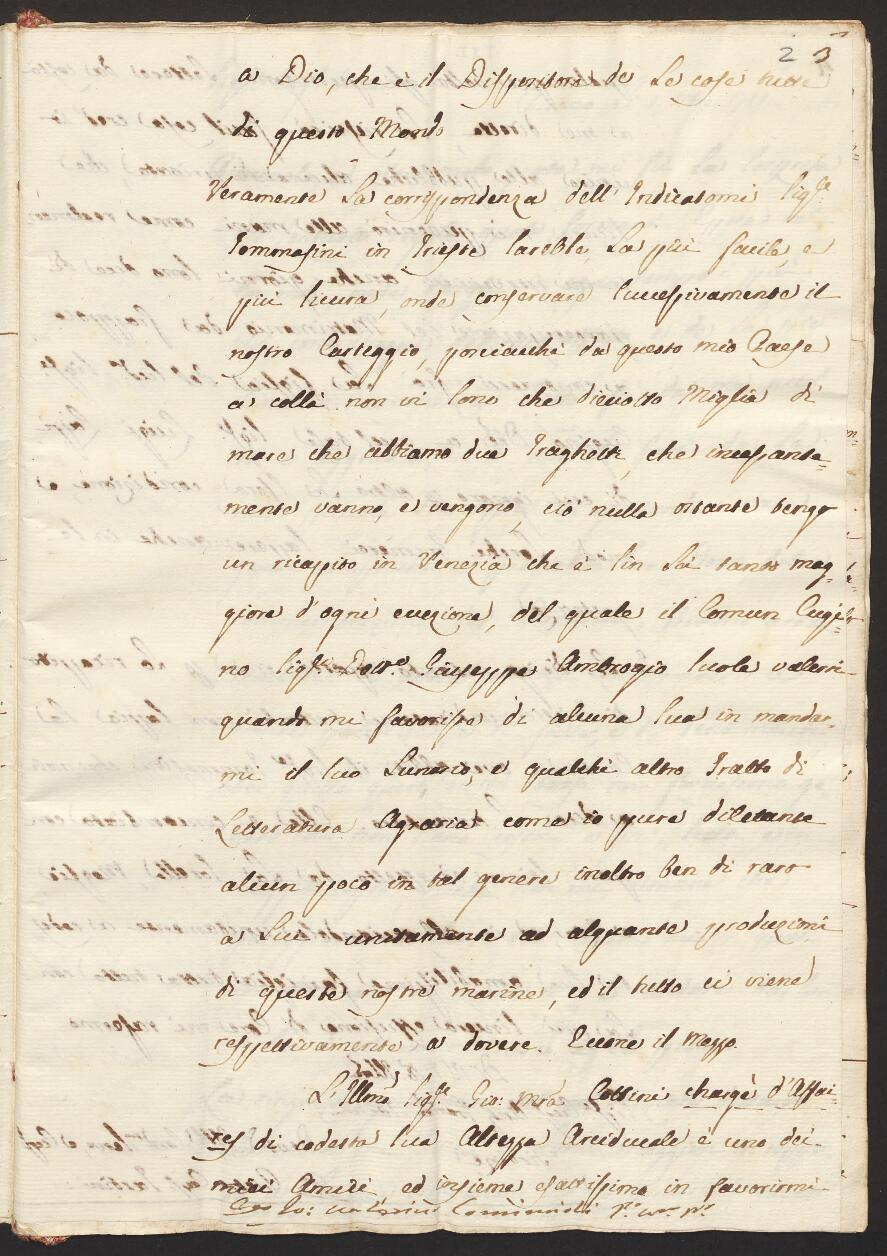 2 3
a Dio, che è il Dispensatore de le cose tutte
di questo Mondo
Veramente la corrispondenza dell' Indicatomi Sig.r
Tommasini in Trieste sarebbe la più facile, e
più sicura, onde conservare successivamente il
nostro Carteggio, poiciacchè da questo mio Paese
a collà non vi sono che dieciotto Miglia di
mare che abbiamo due Traghetti, che incessante=
mente vanno, e vengono, ciò nulla ostante tengo
un ricapito in Venezia che è sin là tanto mag=
giore d'ogni eccezione, del quale il Comun Cugi=
no Sig.r Dott.e Giuseppe Ambrogio suole valersi
quando mi favorisce di alcuna sua in mandar=
mi il suo Lunario, e qualche altro Tratto di
Letteratura Agraria come io pure diletante
alcun poco in tal genere inoltro ben di raro
a Lui unitamente ad alquante produzioni
di queste nostre marine, ed il tutto ci viene
respettivamente a dovere. Eccone il mezzo.
L'Illmo Sig.r Gio: Mra Cottini chargè d'Affai=
res di codesta Sua Altezza Arciducale è uno dei
miei Amici, ed insieme esattissimo in favorirmi